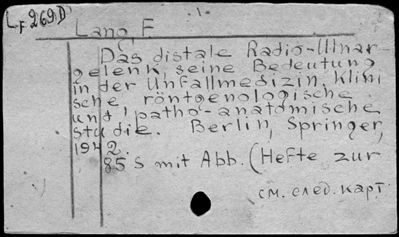 LF 269D
- 1 -
Lang, F
Das distale Radio-Ulnar-
gelenk, seine Bedeutung
in der Unfallmedizin. Klini
sche röntgenologische
und patho-anatomische
studie. Berlin, Springer,
1942.
85 S mit Abb. (Hefte zur
см. след. карт